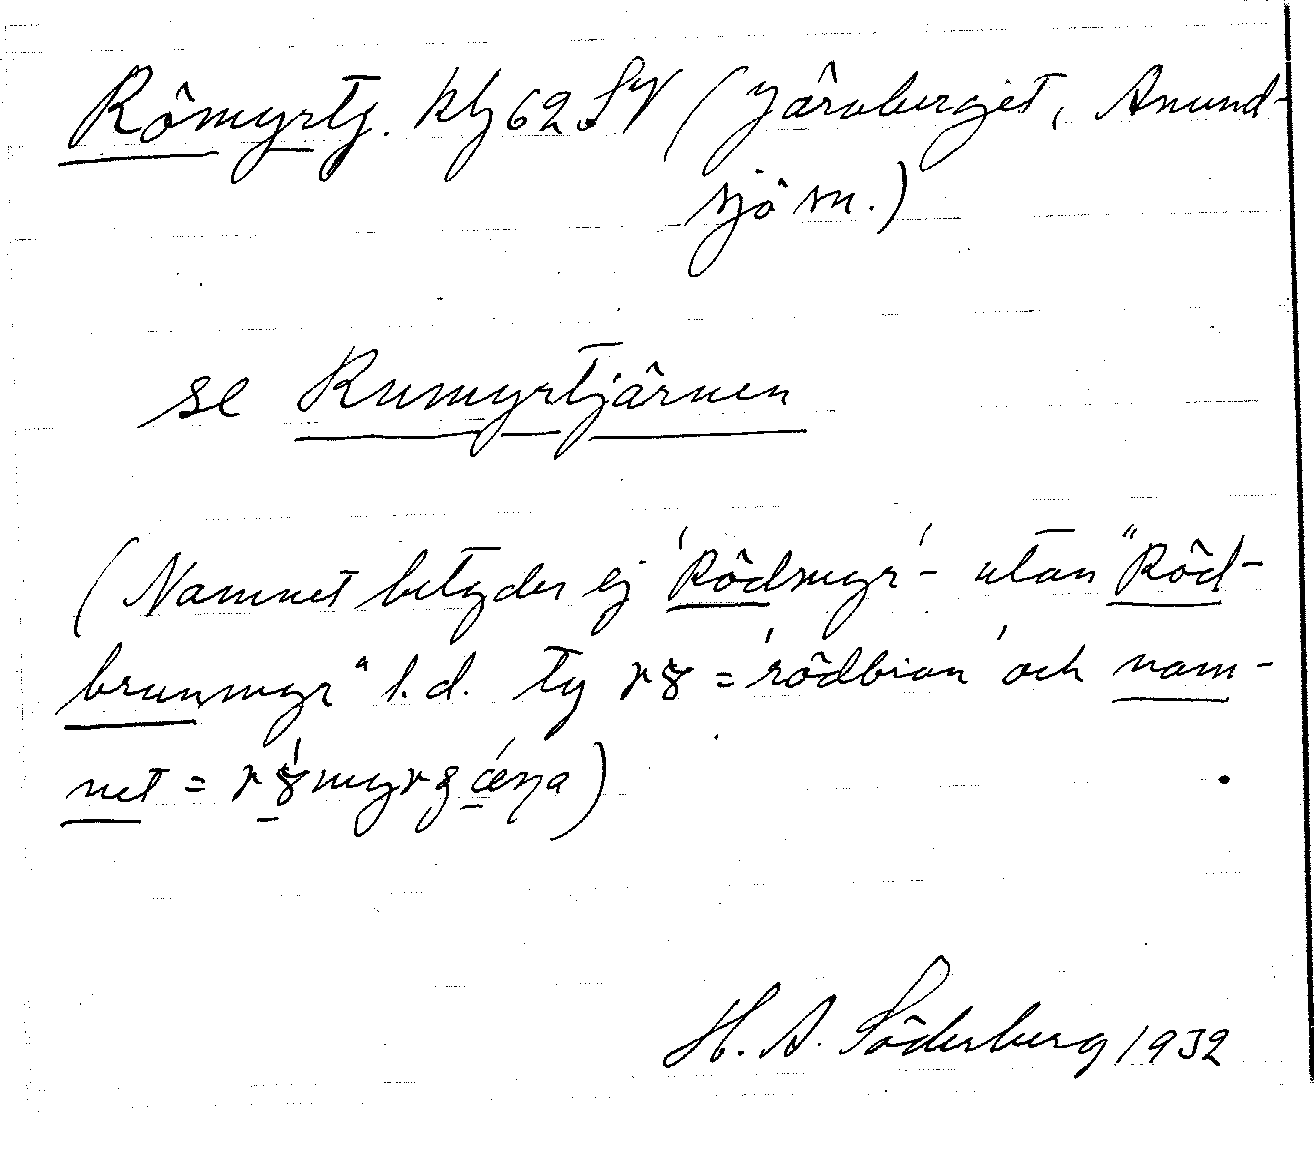 Römyrtj. kbl 62 SV (Järvberget, Anund-
sjö sn.)
se Rumyrtjärnen
(Namnet betyder ej 'Rödmyr'- utan "Röd-
brunmyr" l.d. ty = 'rödbrun' och nam-
net = )
H. A. Söderberg 1932